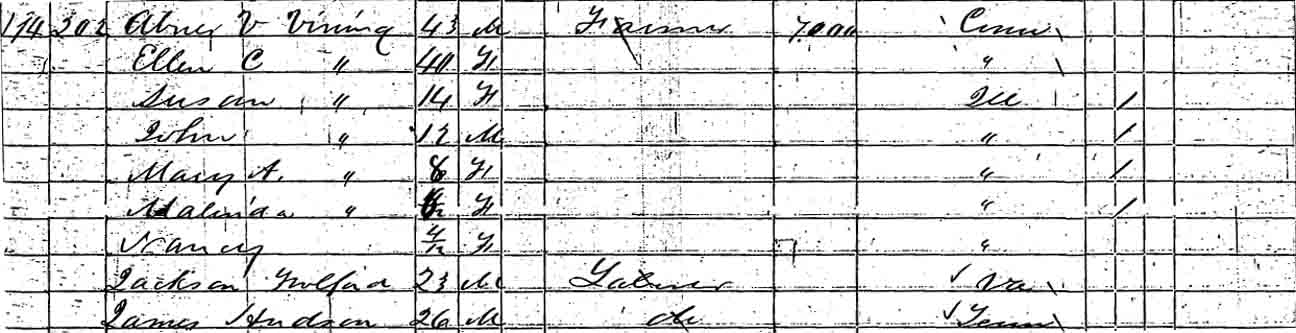 174 302 Abner V Vining 43 M Farmer 7000 Conn
Ellen C " 40 F "
Susan " 14 F Ill /
John " 12 M " /
Mary A. " 8 F " /
Malinda " F " /
Nancy 4/12 F "
Jackson 23 M Laborer ✓ Va
James Hudson 26 M do ✓ Tenn